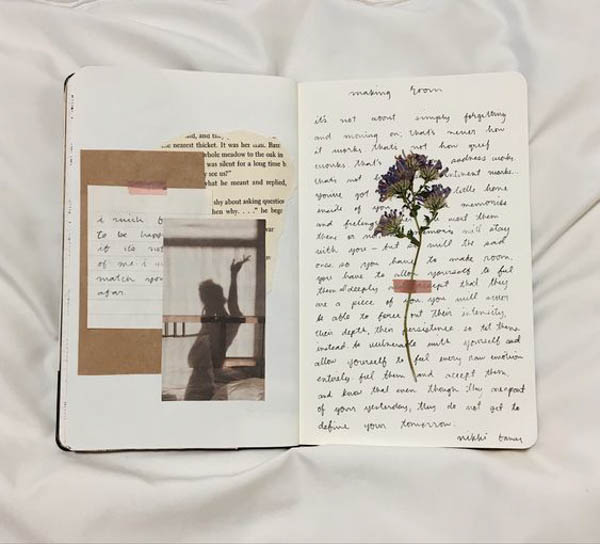 ed, and the
e nearest thicket. It was her
whole meadow to the oak in
was silent for a long time b
y see us?"
what he meant and replied,
shy about asking question
hen why. . . ." he bega
i wish
to be happ
it it's not
of me. i
match your
afar.
making room
it's not about simply forgetting
and moving on, that's never how
it works. that's not how grief
works. that's sadness works.
that's not works.
you've got little home
inside of your memories
and feelings want them
there or not memories will stay
with you - but so will the sad
ones. so you have to make room.
you have to allow yourself to feel
them deeply accept that they
are a piece of you. you will never
be able to force out their intensity,
their depth, their persistence so let them.
instead be vulnerable with yourself and
allow yourself to feel every raw emotion
entirely. feel them and accept them.
and know that even though they are part
of your yesterday, they do not get to
define your tomorrow.
nikki